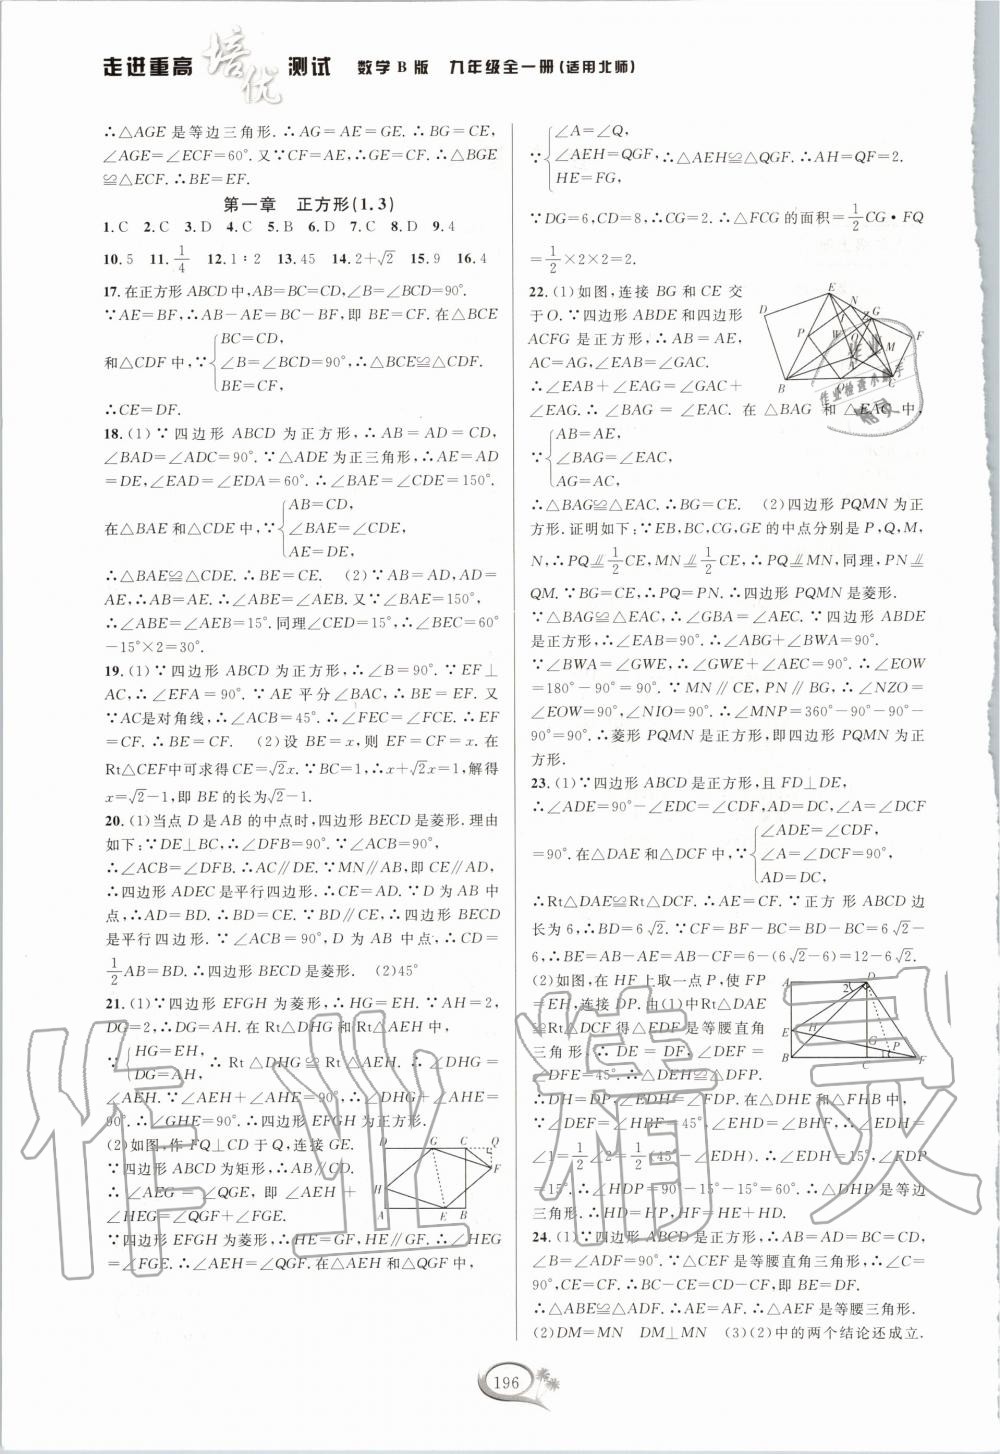 走进重高 培优 测试 数学 B 版 九年级全一册(适用北师)
∴△AGE 是等边三角形.∴AG=AE=GE.∴BG=CE,
∠AGE=∠ECF=60°.又∵CF=AE,∴GE=CF.∴△BGE
≌△ECF.∴BE=EF.
第一章 正方形(1.3)
1.C 2.C 3.D 4.C 5.B 6.D 7.C 8.D 9.4
10.5 11.1/4 12.1∶2 13.45 14.2+√2 15.9 16.4
17.在正方形 ABCD 中,AB=BC=CD,∠B=∠BCD=90°.
∵AE=BF,∴AB-AE=BC-BF,即 BE=CF.在△BCE
和△CDF 中,∵{BC=CD,
∠B=∠BCD=90°,∴△BCE≌△CDF.
BE=CF,
∴CE=DF.
18.(1)∵四边形 ABCD 为正方形,∴AB=AD=CD,
∠BAD=∠ADC=90°.∵△ADE 为正三角形,∴AE=AD
=DE,∠EAD=∠EDA=60°.∴∠BAE=∠CDE=150°.
在△BAE 和△CDE 中,∵{AB=CD,
∠BAE=∠CDE,
AE=DE,
∴△BAE≌△CDE.∴BE=CE. (2)∵AB=AD,AD=
AE,∴AB=AE.∴∠ABE=∠AEB.又∵∠BAE=150°,
∴∠ABE=∠AEB=15°.同理∠CED=15°,∴∠BEC=60°
-15°×2=30°.
19.(1)∵四边形 ABCD 为正方形,∴∠B=90°.∵EF⊥
AC,∴∠EFA=90°.∵AE 平分∠BAC,∴BE=EF.又
∵AC是对角线,∴∠ACB=45°.∴∠FEC=∠FCE.∴EF
=CF.∴BE=CF. (2)设 BE=x,则 EF=CF=x.在
Rt△CEF中可求得CE=√2x.∵BC=1,∴x+√2x=1,解得
x=√2-1,即 BE 的长为√2-1.
20.(1)当点 D 是 AB 的中点时,四边形 BECD 是菱形.理由
如下:∵DE⊥BC,∴∠DFB=90°.∵∠ACB=90°,
∴∠ACB=∠DFB.∴AC∥DE.∵MN∥AB,即 CE∥AD,
∴四边形 ADEC 是平行四边形.∴CE=AD.∵D 为 AB 中
点,∴AD=BD.∴BD=CE.∵BD∥CE,∴四边形 BECD
是平行四边形.∵∠ACB=90°,D 为 AB 中点,∴CD=
1/2AB=BD.∴四边形 BECD 是菱形. (2)45°
21.(1)∵四边形 EFGH 为菱形,∴HG=EH.∵AH=2,
DG=2,∴DG=AH.在 Rt△DHG 和Rt△AEH 中,
∵{HG=EH,
DG=AH,∴Rt△DHG≌Rt△AEH.∴∠DHG=
∠AEH.∵∠AEH+∠AHE=90°,∴∠DHG+∠AHE=
90°.∴∠GHE=90°.∴四边形 EFGH 为正方形.
(2)如图,作 FQ⊥CD 于 Q,连接 GE.
∵四边形 ABCD 为矩形,∴AB∥CD.
∴∠AEG=∠QGE,即∠AEH+
∠HEG=∠QGF+∠FGE.
D G C Q F H A E B
∵四边形 EFGH 为菱形,∴HE=GF,HE∥GF.∴∠HEG
=∠FGE.∴∠AEH=∠QGF.在△AEH 和△QGF 中,
∵{∠A=∠Q,
∠AEH=QGF,∴△AEH≌△QGF.∴AH=QF=2.
HE=FG,
∵DG=6,CD=8,∴CG=2.∴△FCG 的面积=1/2CG•FQ
=1/2×2×2=2.
22.(1)如图,连接 BG 和 CE 交
于O.∵四边形 ABDE 和四边形
ACFG 是正方形,∴AB=AE,
AC=AG,∠EAB=∠GAC.
∴∠EAB+∠EAG=∠GAC+
∠EAG.∴∠BAG=∠EAC.在△BAG 和△EAC 中,
∵{AB=AE,
∠BAG=∠EAC,
AG=AC,
∴△BAG≌△EAC.∴BG=CE. (2)四边形 PQMN 为正
方形.证明如下:∵EB,BC,CG,GE 的中点分别是 P,Q,M,
N,∴PQ⫽1/2CE,MN⫽1/2CE,∴PQ⫽MN,同理,PN⫽
QM.∵BG=CE,∴PQ=PN.∴四边形 PQMN 是菱形.
∵△BAG≌△EAC,∴∠GBA=∠AEC.∵四边形 ABDE
是正方形,∴∠EAB=90°.∴∠ABG+∠BWA=90°.
∵∠BWA=∠GWE,∴∠GWE+∠AEC=90°.∴∠EOW
=180°-90°=90°.∵MN∥CE,PN∥BG,∴∠NZO=
∠EOW=90°,∠NIO=90°.∴∠MNP=360°-90°-90°-
90°=90°.∴菱形 PQMN 是正方形,即四边形 PQMN 为正
方形.
23.(1)∵四边形 ABCD 是正方形,且 FD⊥DE,
∴∠ADE=90°-∠EDC=∠CDF,AD=DC,∠A=∠DCF
=90°.在△DAE 和△DCF 中,∵{∠ADE=∠CDF,
∠A=∠DCF=90°,
AD=DC,
∴Rt△DAE≌Rt△DCF.∴AE=CF.∵正方形 ABCD 边
长为 6,∴BD=6√2.∵CF=BF-BC=BD-BC=6√2-
6,∴BE=AB-AE=AB-CF=6-(6√2-6)=12-6√2.
(2)如图,在 HF 上取一点 P,使 FP
=EH,连接 DP.由(1)中Rt△DAE
≌Rt△DCF 得△EDF 是等腰直角
三角形.∴DE=DF,∠DEF=
∠DFE=45°.∴△DEH≌△DFP.
∴DH=DP,∠EDH=∠FDP.在△DHE 和△FHB 中,
∵∠DEF=∠HBF=45°,∠EHD=∠BHF,∴∠EDH=
∠1=1/2∠2=1/2(45°-∠EDH).∴∠EDH=15°,∠FDP
=15°.∴∠HDP=90°-15°-15°=60°.∴△DHP 是等边
三角形.∴HD=HP,HF=HE+HD.
24.(1)∵四边形 ABCD 是正方形,∴AB=AD=BC=CD,
∠B=∠ADF=90°.∵△CEF 是等腰直角三角形,∠C=
90°,CE=CF.∴BC-CE=CD-CF,即 BE=DF.
∴△ABE≌△ADF.∴AE=AF.∴△AEF 是等腰三角形.
(2)DM=MN DM⊥MN (3)(2)中的两个结论还成立.
196
作业精灵